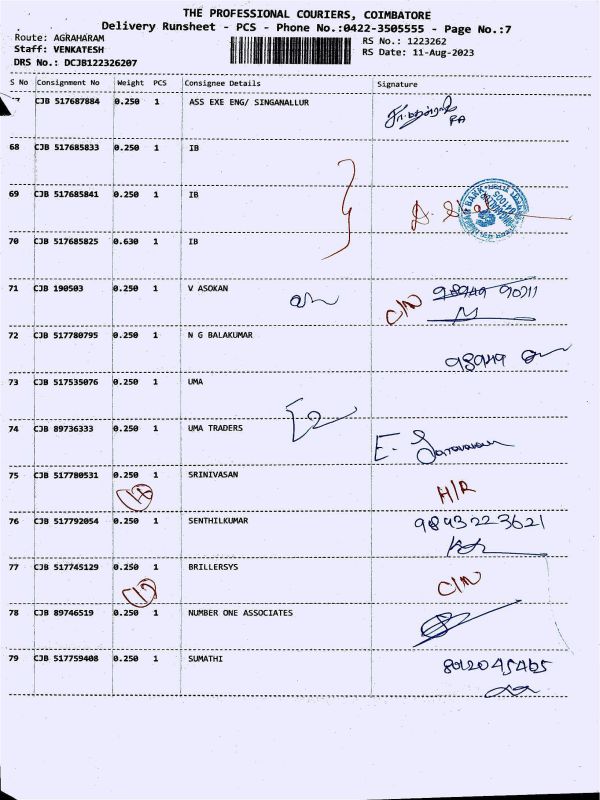 THE PROFESSIONAL COURIERS, COIMBATORE
Delivery Runsheet - PCS - Phone No.:0422-3505555 - Page No.:7
Route: AGRAHARAM RS No.: 1223262
Staff: VENKATESH RS Date: 11-Aug-2023
DRS No.: DCJB122326207
S No Consignment No Weight PCS Consignee Details Signature
CJB 517687884 0.250 1 ASS EXE ENG/ SINGANALLUR
68 CJB 517685833 0.250 1 IB
69 CJB 517685841 0.250 1 IB
70 CJB 517685825 0.630 1 IB
71 CJB 190503 0.250 1 V ASOKAN C/N 98949 90211
72 CJB 517780795 0.250 1 N G BALAKUMAR
98949
73 CJB 517535076 0.250 1 UMA
74 CJB 89736333 0.250 1 UMA TRADERS
75 CJB 517780531 0.250 1 SRINIVASAN H/R
76 CJB 517792054 0.250 1 SENTHILKUMAR 9893223621
77 CJB 517745129 0.250 1 BRILLERSYS C/N
78 CJB 89746519 0.250 1 NUMBER ONE ASSOCIATES
79 CJB 517759408 0.250 1 SUMATHI